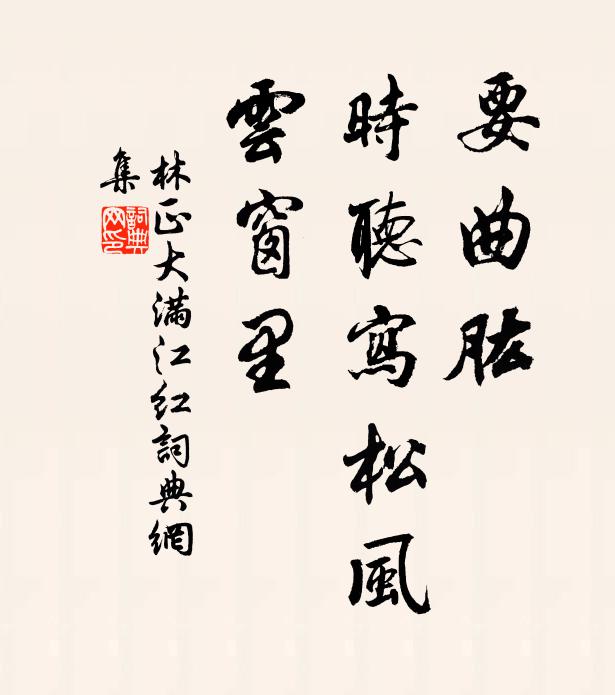 要曲肱
時聽寫松風
雲窗里
林正大滿江紅詞典網
集
詞典
网印